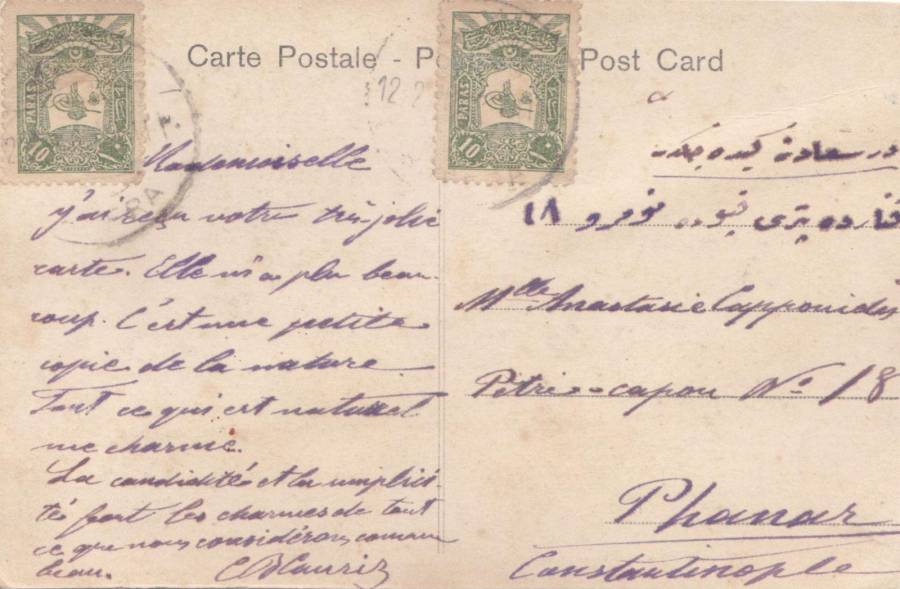 Carte Postale - Po
Post Card
PARAS
10
PARAS
10
12
Mademoiselle
j'ai reçu votre très jolie
carte. Elle m'a plu beau-
coup. C'est une petite
copie de la nature
Tout ce qui est naturel
me charme.
La candidité et la simplici-
té font les charmes de tout
ce que nous considérons comme
beau.
در سعادت
فنارده پتری قپوده نومرو ١٨
Mlle Anastasie Cappouidis
Pétri-capou No 18
Phanar
Constantinople